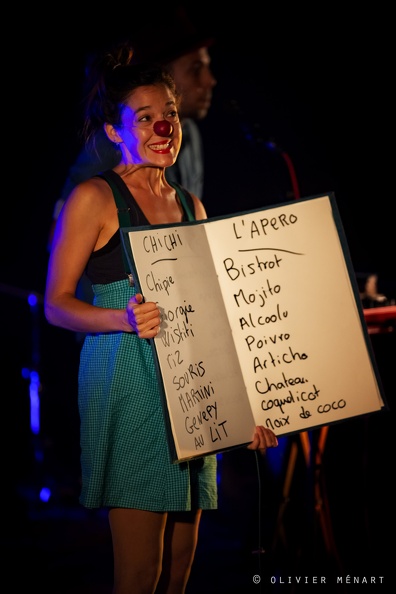 CHiCHi
Chipie
Wistiti
riz
SOURIS
MARTiNi
GENEPY
AU LiT
L'APERO
Bistrot
Mojito
Alcoolo
Poivro
Articho
Chateau
coquelicot
Noix de coco
© OLIVIER MÉNART